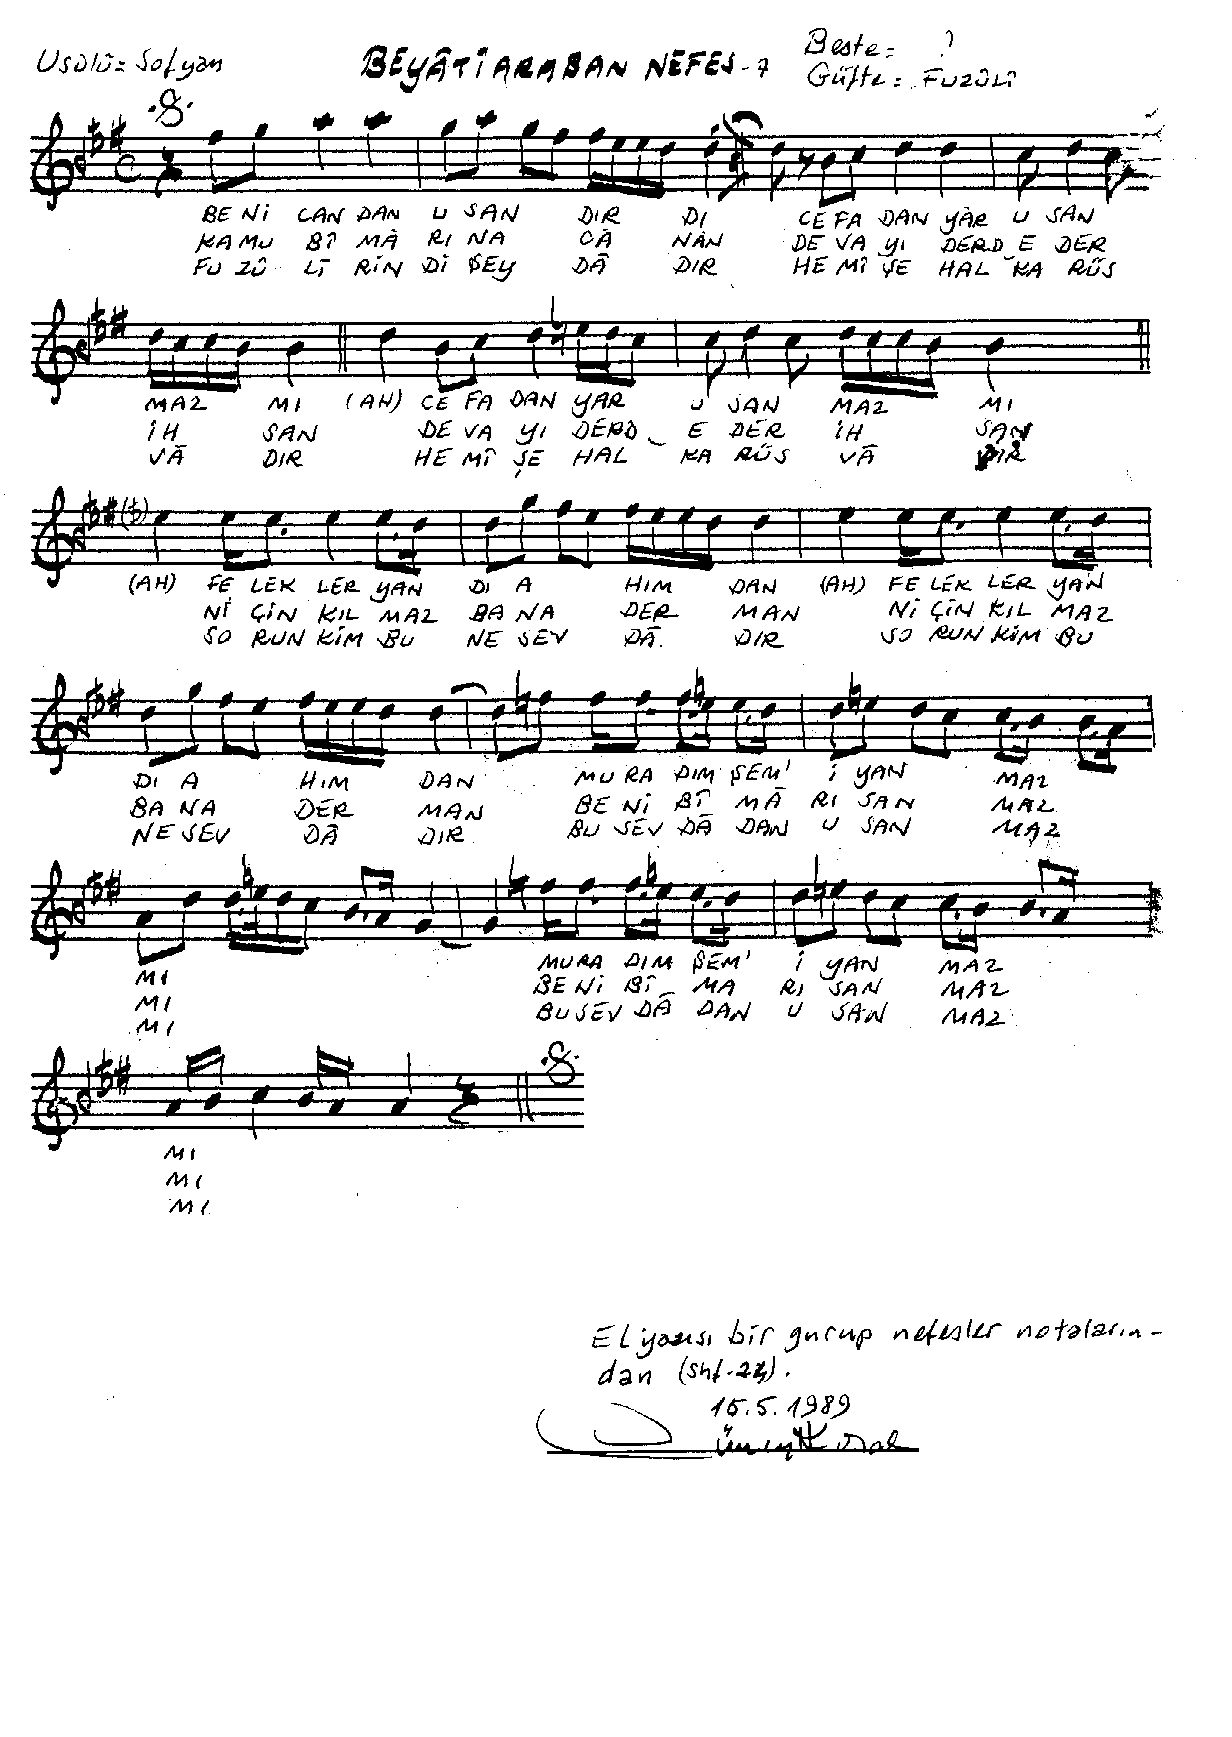 Usûlü: Sofyan
BEYÂTİARABAN NEFES-7
Beste: ?
Güfte: FUZÛLÎ
BE Nİ CAN DAN U SAN DIR DI CE FA DAN YÂR U SAN
KA MU BÎ MÂ RI NA CÂ NÂN DE VA YI DERD E DER
FU ZÛ LÎ RİN Dİ ŞEY DÂ DIR HE MÎ ŞE HAL KA RÜS
MAZ MI (AH) CE FA DAN YÂR U SAN MAZ MI
İH SAN DE VA YI DERD E DER İH SAN
VÂ DIR HE MÎ ŞE HAL KA RÜS VÂ DIR
(AH) FE LEK LER YAN DI A HIM DAN (AH) FE LEK LER YAN
Nİ ÇİN KIL MAZ BA NA DER MAN Nİ ÇİN KIL MAZ
SO RUN KİM BU NE SEV DÂ DIR SO RUN KİM BU
DI A HIM DAN MU RA DIM ŞEM' İ YAN MAZ
BA NA DER MAN BE Nİ BÎ MÂ RI SAN MAZ
NE SEV DÂ DIR BU SEV DÂ DAN U SAN MAZ
MI MU RA DIM ŞEM' İ YAN MAZ
MI BE Nİ BÎ MA RI SAN MAZ
MI BU SEV DÂ DAN U SAN MAZ
MI
MI
MI
El yazısı bir gurup nefesler notaların-
dan (shf-).
15.5.1989